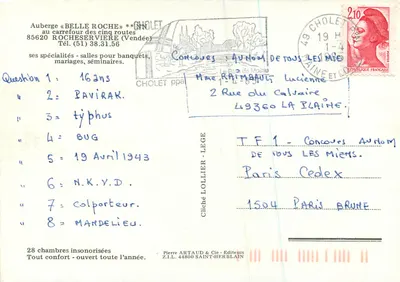 Auberge «BELLE ROCHE» **NN
au carrefour des cinq routes
85620 ROCHESERVIERE (Vendée)
Tél. (51) 38.31.56
ses spécialités - salles pour banquets,
mariages, séminaires.
Question 1 : 16 ans
" 2 = PAVIRAK.
" 3 = typhus
" 4 = BUG
" 5 = 19 Avril 1943
" 6 = N.K.V.D.
" 7 = Colporteur.
" 8 = MANDELIEU.
28 chambres insonorisées
Tout confort - ouvert toute l'année.
Cliché LOLLIER - LEGE
Pierre ARTAUD & Cie - Editeurs
Z.I.L. 44800 SAINT-HERBLAIN
CHOLET
CHOLET PPAL
49 CHOLET
19 H
2,10
Concours = AU NOM DE TOUS LES MIENS
Mme RAIMBAULT Lucienne
2 Rue du Calvaire
49360 LA PLAINE.
TF1 - Concours AU NOM
DE TOUS LES MIENS.
Paris Cedex
1504 PARIS BRUNE